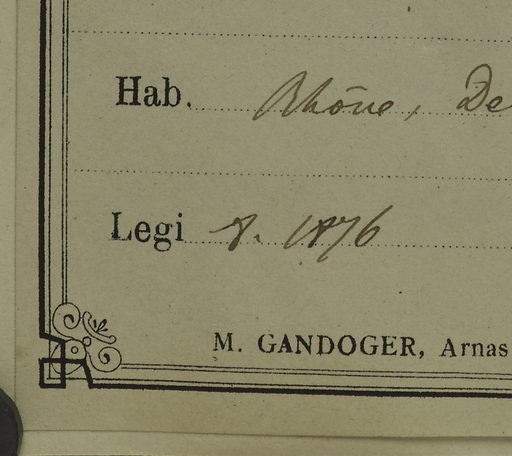 Hab. Rhône, De
Legi 8. 1876
M. GANDOGER, Arnas